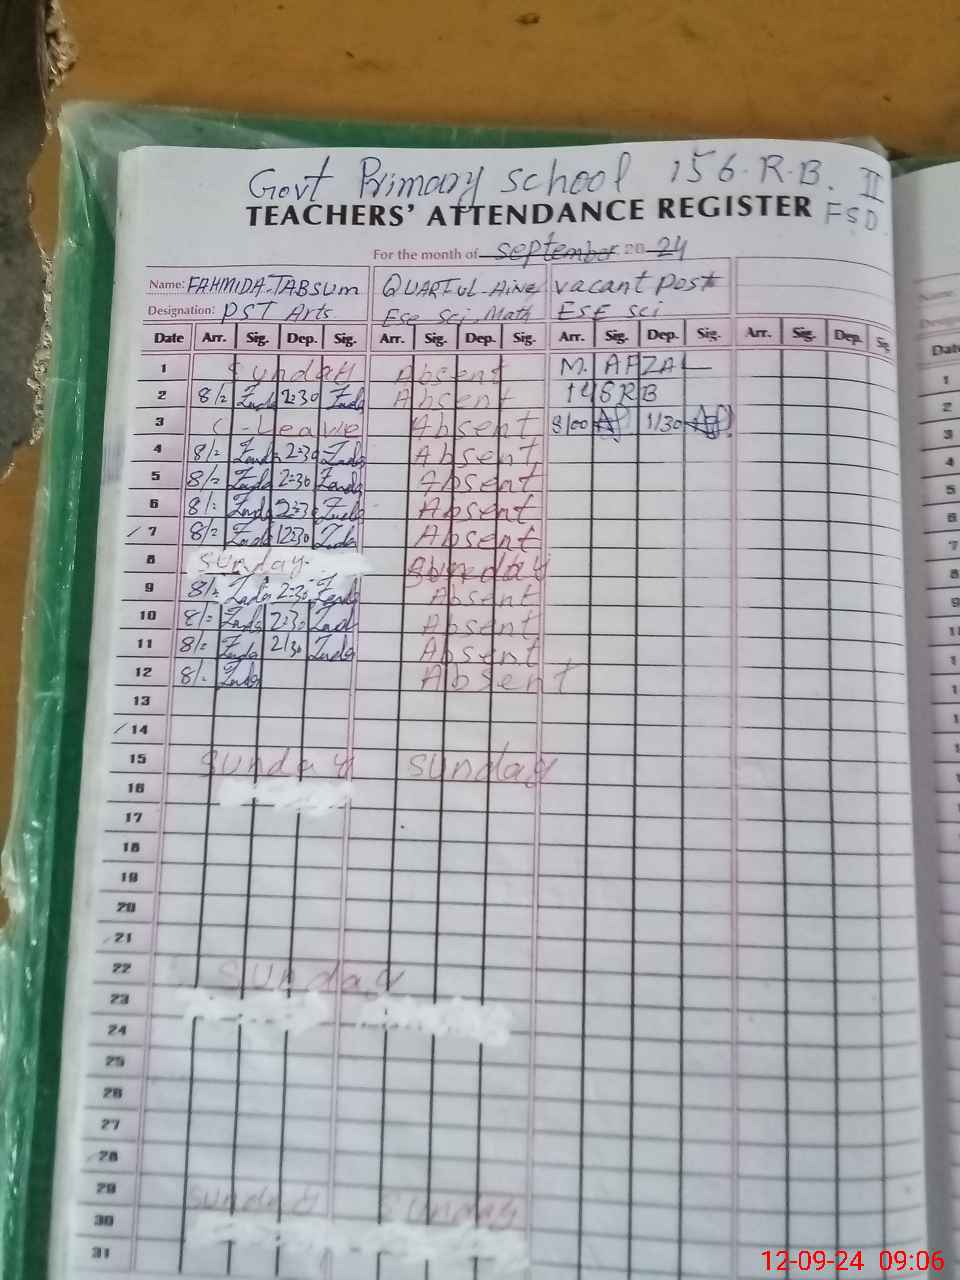 Govt Primary school 156-R-B. II
TEACHERS' ATTENDANCE REGISTER FSD.
For the month of september 20 24
Name: FAHMIDA-TABSUM QUARTUL-AINE vacant Post
Designation: PST Arts Ese Sci Math ESE sci
Date Arr. Sig. Dep. Sig. Arr. Sig. Dep. Sig. Arr. Sig. Dep. Sig. Arr. Sig. Dep. Sig.
1 Sunday Absent M. AFZAL
2 8/= 2:30 Absent 148 RB
3 C-Leave Absent 8/00 1/30
4 8/= 2:30 Absent
5 8/= 2:30 Absent
6 8/= 2:30 Absent
7 8/= 12:30 Absent
8 Sunday. Sunday
9 8/= 2:30 Absent
10 8/= 2:30 Absent
11 8/= 2/30 Absent
12 8/= Absent
13
14
15 Sunday Sunday
16
17
18
19
20
21
22 Sunday
23
24
25
26
27
28
29 Sunday Sunday
30
31
Name:
Date
1
2
3
4
5
6
7
8
9
12-09-24 09:06